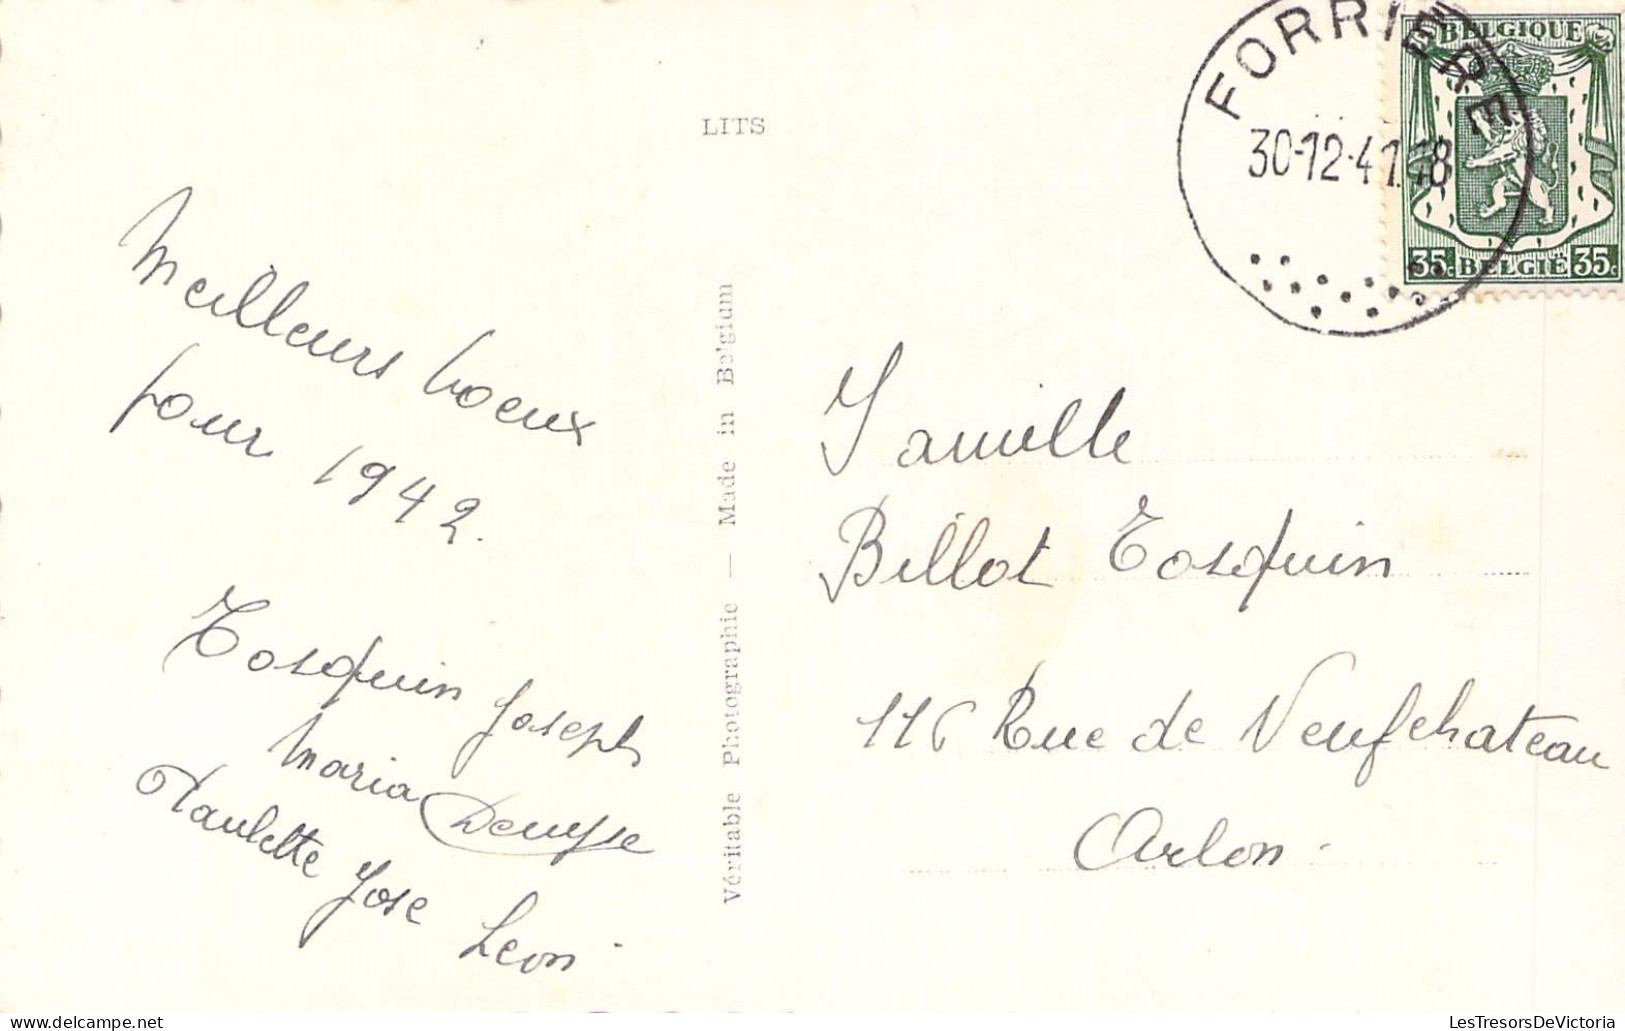 LITS
Meilleurs voeux
pour 1942.
Tosquin Joseph
Maria Denyse
Paulette José
Léon
Véritable Photographie — Made in Belgium
FORRIERE
30-12-41.18
BELGIQUE
35c BELGIË 35c
Famille
Billot Tosquin
116 Rue de Neufchateau
Arlon.
LesTresorsDeVictoria
www.delcampe.net